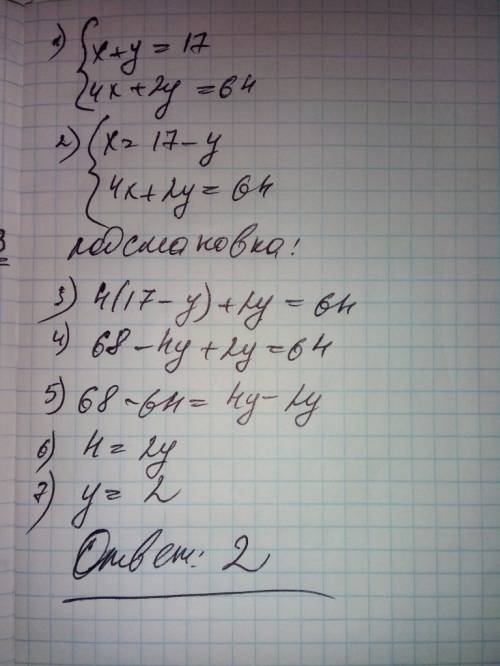 1) { x+y = 17
4x+2y = 64
2) { x = 17-y
4x+2y = 64
подстановка:
3) 4(17-y)+2y = 64
4) 68-4y+2y = 64
5) 68-64 = 4y-2y
6) 4 = 2y
7) y = 2
Ответ: 2